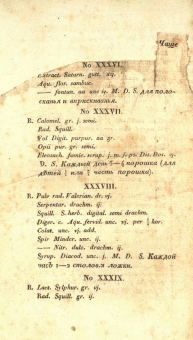 Чаще
No XXXVI.
extract. Saturn. gutt. xij.
Aqu. flor. sambuc.
— fontan. aa unc iv. M. D. S. для поло-
сканья и впрыскиванья.
No XXXVII.
R. Calomel. gr. j. semi.
Rad. Squill.
Fol Digit. purpur. aa gr.
Opii pur. gr. semi.
Eleosach. foenic. scrup. j. m. f. p. Dis. Dos.
D. S. Каждой день порошка (для
дѣтей или порошка).
XXXVIII.
R. Pulv rad. Valerian. dr. vj.
Serpentar. drachm. ij.
Squill. S. herb. digital. semi drachm.
Diger. c. Aqu. fervid. unc. vj. per hor.
Colat. unc. vj. add.
Spir Minder. unc. ij.
— Nitr. dulc. drachm. ij.
Syrup. Diacod. unc. j. M. D. S. Каждой
часъ 1—2 столовя ложки.
No XXXIX.
R. Lact. Sylphur. gr. vj.
Rad. Squill. gr. ij.